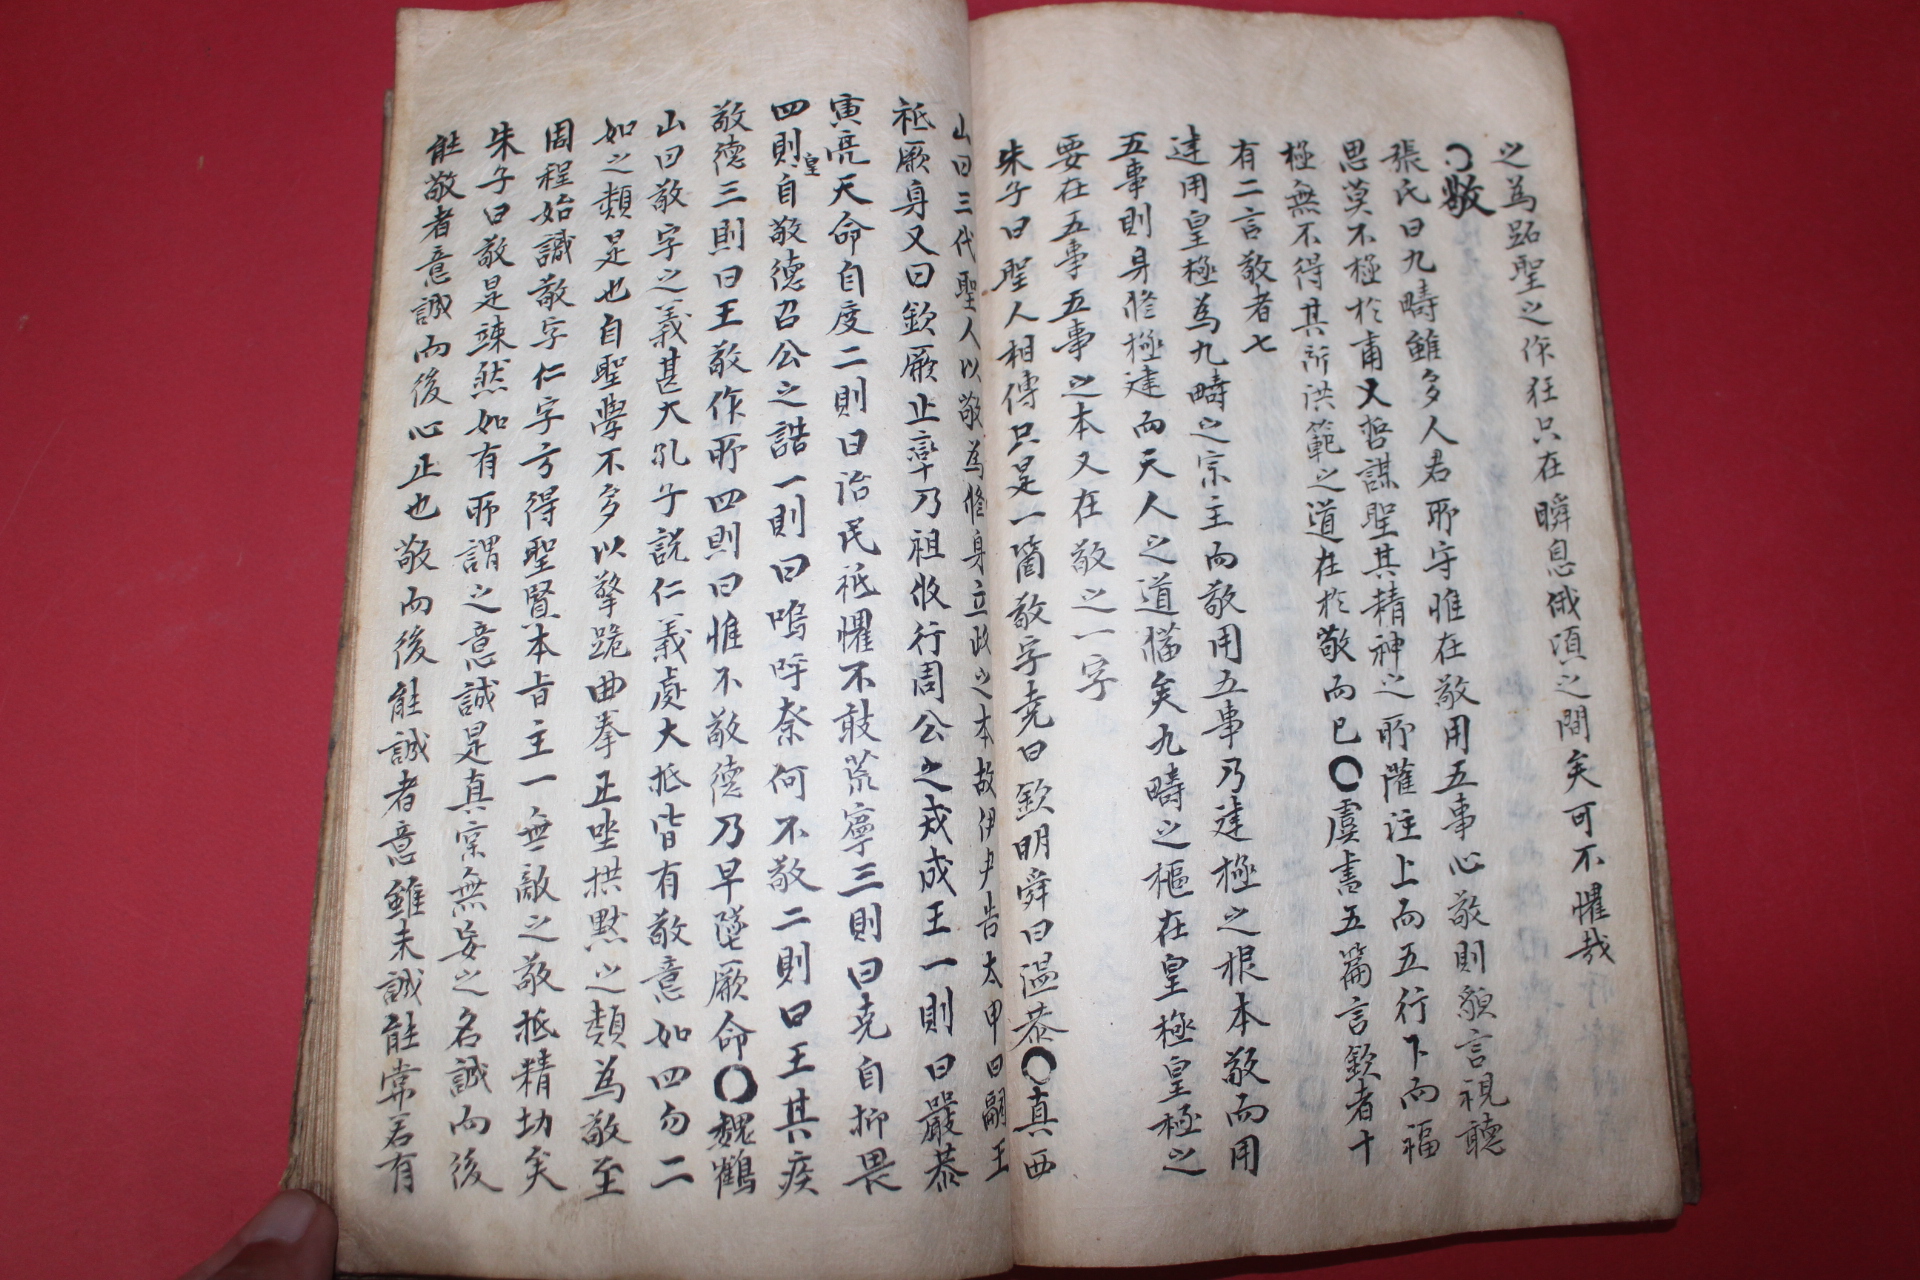 之為跖聖之作狂只在瞬息俄頃之間矣可不懼哉
〇敬
張氏曰九疇雖多人君所守惟在敬用五事心敬則貌言視聽
思莫不極於肅乂哲謀聖其精神之所薩注上而五行下而福
極無不得其所洪範之道在於敬而已〇虞書五篇言欽者十
有二言敬者七
建用皇極為九疇之宗主而敬用五事乃建極之根本敬而用
五事則身修極建而天人之道備矣九疇之樞在皇極皇極之
要在五事五事之本又在敬之一字
朱子曰聖人相傳只是一箇敬字堯曰欽明舜曰温恭〇真西
山曰三代聖人以敬為修身立政之本故伊尹告太甲曰嗣王
祗厥身又曰欽厥止率乃祖攸行周公之戒成王一則曰嚴恭
寅亮天命自度二則曰治民祗懼不敢荒寧三則曰克自抑畏
四則皇自敬德召公之誥一則曰嗚呼奈何不敬二則曰王其疾
敬德三則曰王敬作所四則曰惟不敬德乃早墜厥命〇魏鶴
山曰敬字之義甚大孔子説仁義處大抵皆有敬意如四勿二
如之類是也自聖學不多以擎跪曲拳正坐拱默之類為敬至
周程始識敬字仁字方得聖賢本旨主一無敵之敬抵精切矣
朱子曰敬是竦然如有所謂之意誠是真宲無妄之名誠而後
能敬者意誠而後心正也敬而後能誠者意雖未誠能常若有